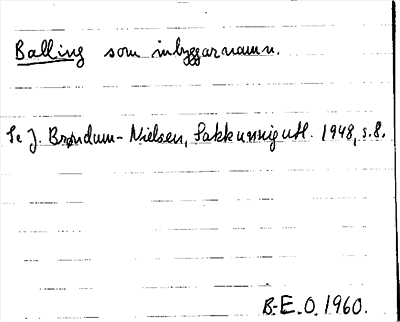 Balling som inbyggarnamn.
Se J. Brøndum-Nielsen, Sakkunnigutl. 1948, s. 8.
B-E.O. 1960.